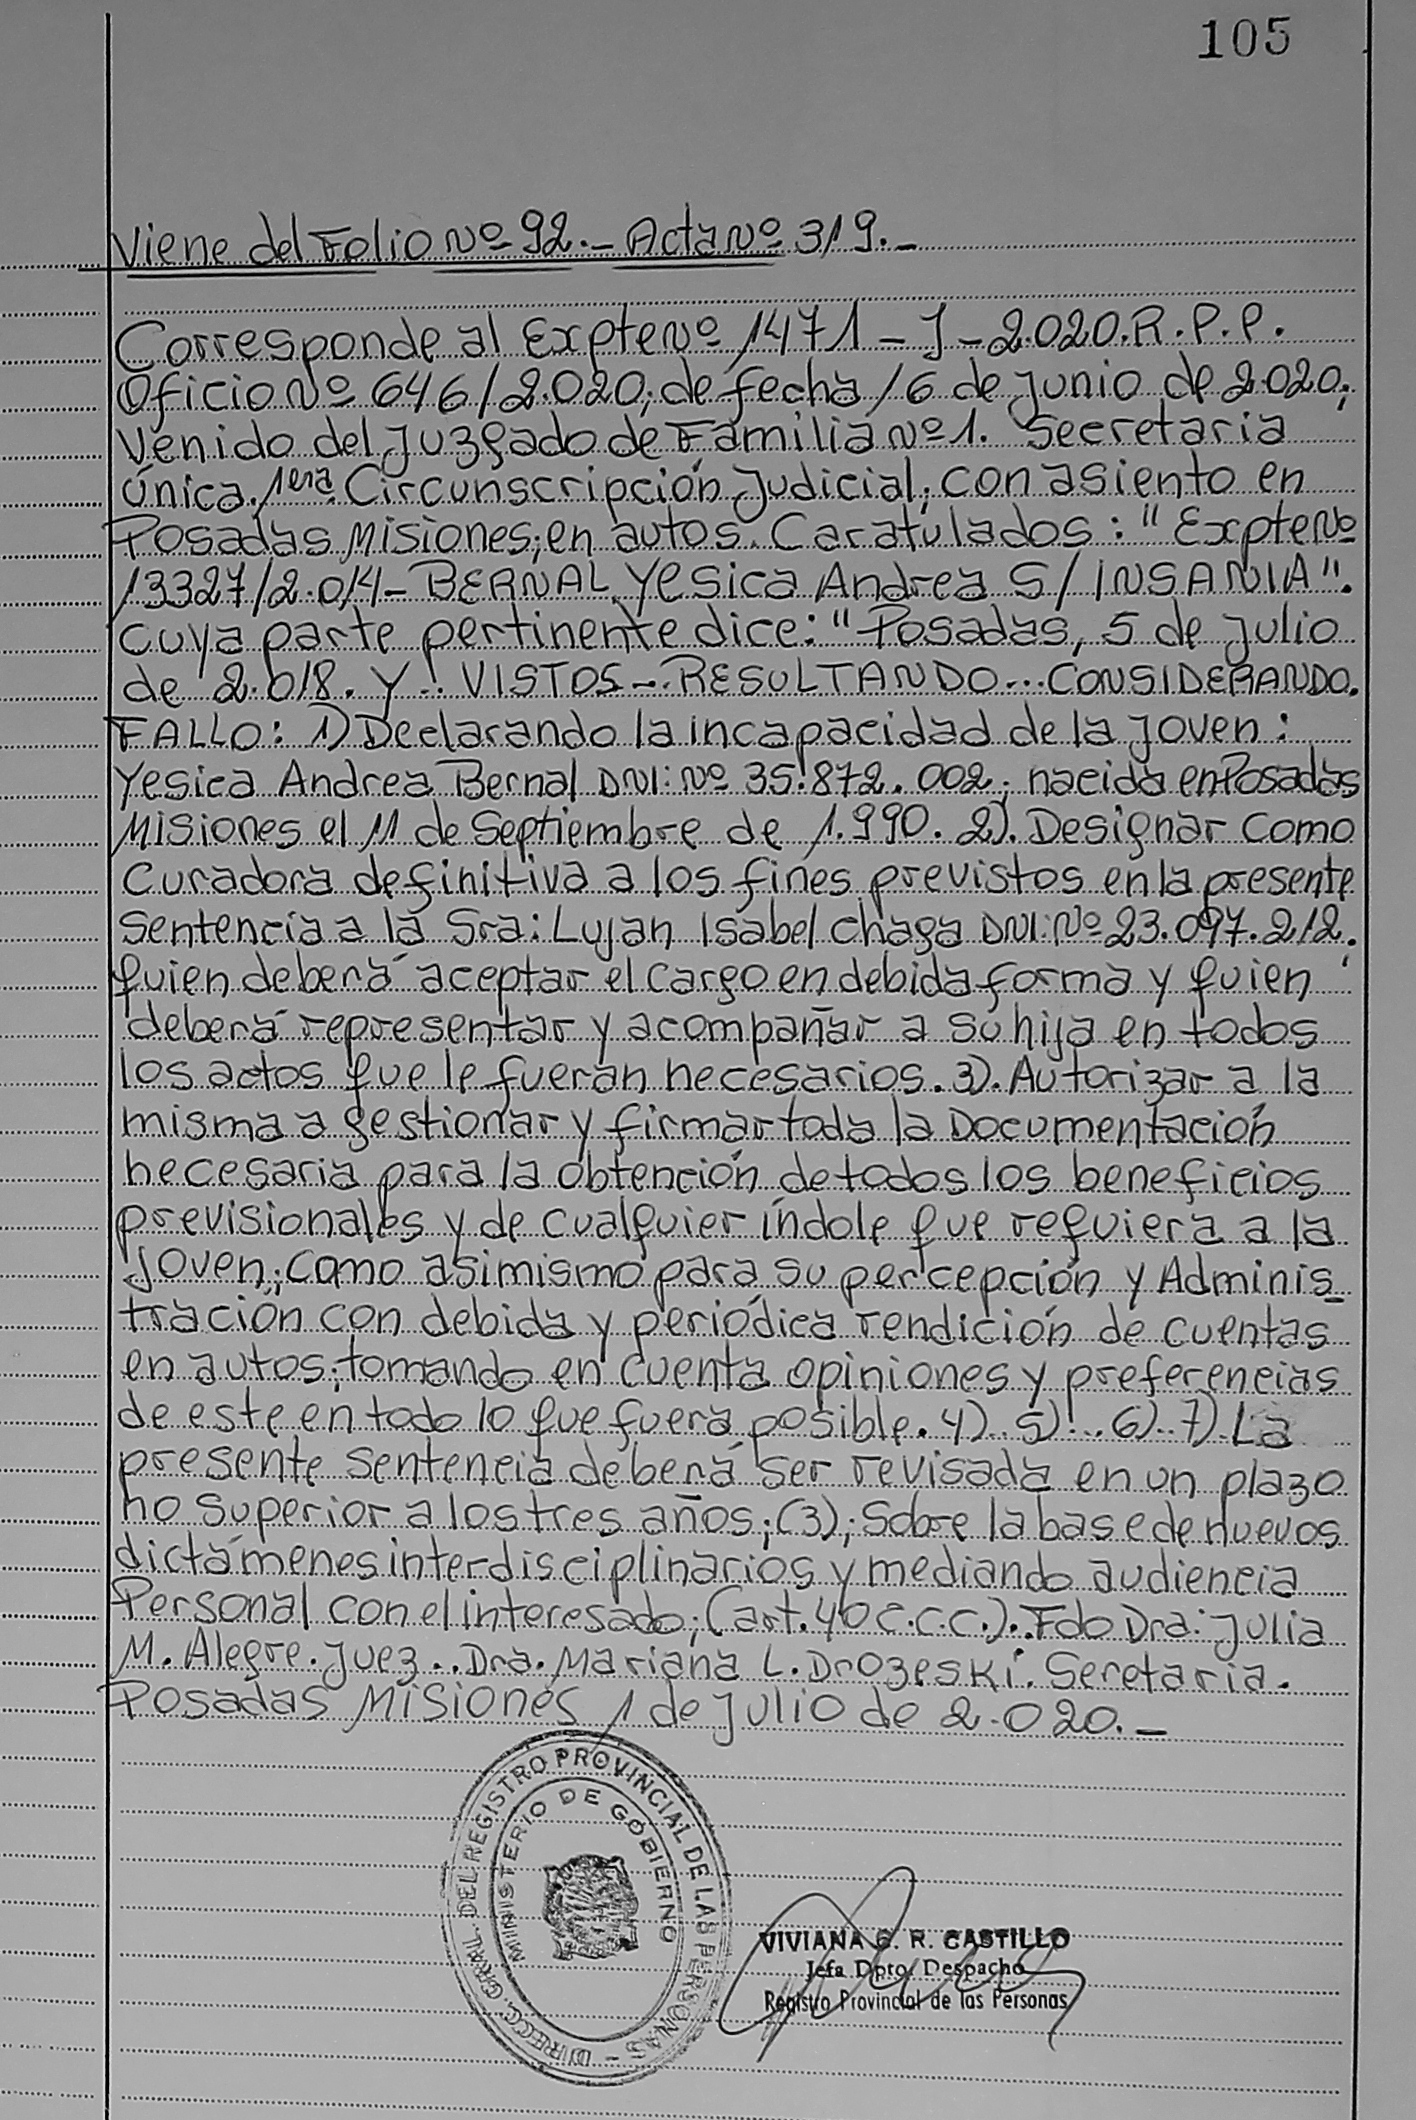 105
Viene del Folio Nº 92.- Acta Nº 319.-
Corresponde al Expte Nº 1471-J-2.020.R.P.P.
Oficio Nº 646/2.020; de fecha 16 de Junio de 2.020;
venido del Juzgado de Familia Nº 1. Secretaria
única. 1era. Circunscripción Judicial; con asiento en
Posadas Misiones; en autos. Caratulados: "Expte Nº
13327/2.014- BERNAL Yesica Andrea S/ INSANIA".
cuya parte pertinente dice: "Posadas, 5 de Julio
de 2.018. Y: VISTOS-. RESULTANDO... CONSIDERANDO.
FALLO: 1) Declarando la incapacidad de la joven:
Yesica Andrea Bernal DNI: Nº 35.872.002; nacida en Posadas
Misiones el 11 de Septiembre de 1.990. 2). Designar como
Curadora definitiva a los fines previstos en la presente
Sentencia a la Sra: Lujan Isabel Chaga DNI: Nº 23.097.212.
quien deberá aceptar el cargo en debida forma y quien
deberá representar y acompañar a su hija en todos
los actos que le fueran necesarios. 3). Autorizar a la
misma a gestionar y firmar toda la Documentación
necesaria para la obtención de todos los beneficios
previsionales y de cualquier índole que requiera a la
Joven; como asimismo para su percepción y Adminis_
tración con debida y periódica rendición de cuentas
en autos; tomando en cuenta opiniones y preferencias
de este en todo lo que fuera posible. 4).. 5)!.. 6).. 7). La
presente Sentencia deberá ser revisada en un plazo
no superior a los tres años; (3); sobre la base de nuevos
dictámenes interdisciplinarios y mediando audiencia
Personal con el interesado; (art. 40 C.C.C.).. Fdo Dra: Julia
M. Alegre. Juez.. Dra. Mariana L. Drozeski. Secretaria.
Posadas Misiones 1 de Julio de 2.020.-
DIRECC. GRAL. DEL REGISTRO PROVINCIAL DE LAS PERSONAS -
MINISTERIO DE GOBIERNO
VIVIANA G. R. CASTILLO
Jefa Dpto. Despacho
Registro Provincial de las Personas